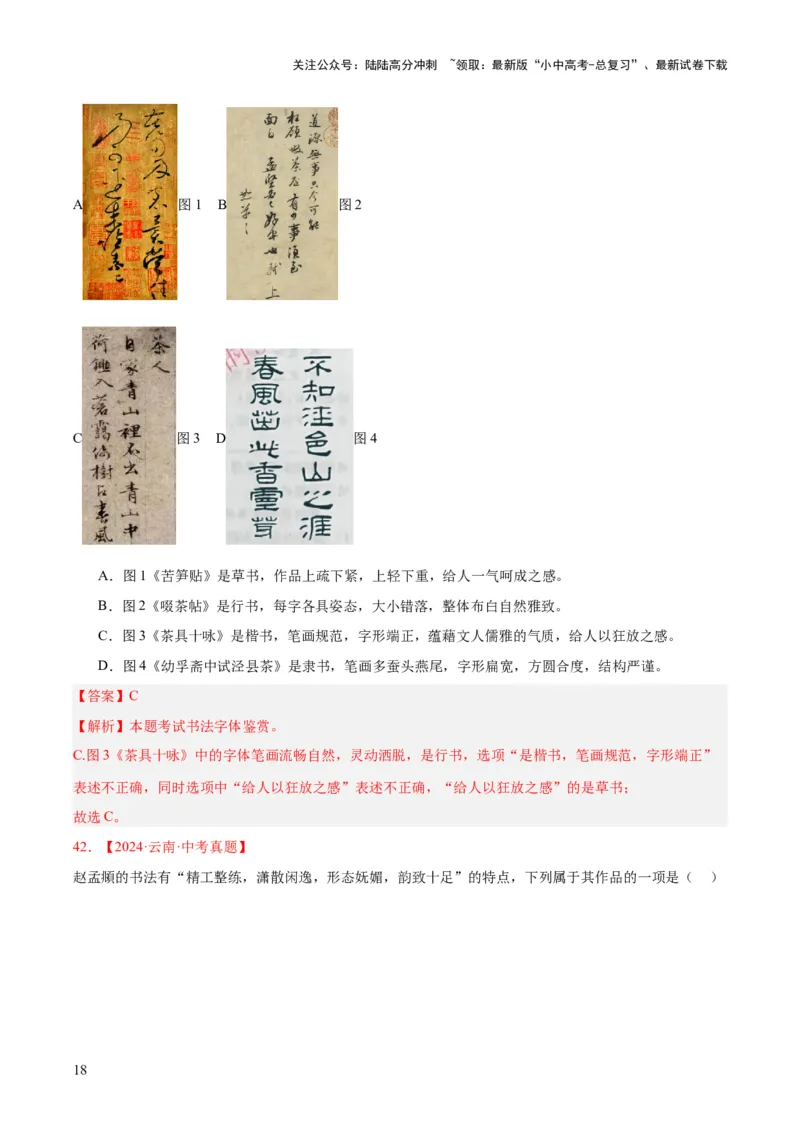 关注公众号：陆陆高分冲刺 ~领取：最新版“小中高考-总复习”、最新试卷下载
A 图1 B 图2
道源無事只今可能
枉顧啜茶否有少事須至
面白 孟堅必已好安也軾上
恕草草
C 图3 D 图4
茶人
日家青山裡不出青山中
荷鋤入蒼靄倚樹占春風
不知涇邑山之涯
春風茁此香靈芽
A．图1《苦笋贴》是草书，作品上疏下紧，上轻下重，给人一气呵成之感。
B．图2《啜茶帖》是行书，每字各具姿态，大小错落，整体布白自然雅致。
C．图3《茶具十咏》是楷书，笔画规范，字形端正，蕴藉文人儒雅的气质，给人以狂放之感。
D．图4《幼孚斋中试泾县茶》是隶书，笔画多蚕头燕尾，字形扁宽，方圆合度，结构严谨。
【答案】C
【解析】本题考试书法字体鉴赏。
C.图3《茶具十咏》中的字体笔画流畅自然，灵动洒脱，是行书，选项“是楷书，笔画规范，字形端正”
表述不正确，同时选项中“给人以狂放之感”表述不正确，“给人以狂放之感”的是草书；
故选C。
42．【2024·云南·中考真题】
赵孟頫的书法有“精工整练，潇散闲逸，形态妩媚，韵致十足”的特点，下列属于其作品的一项是（ ）
18